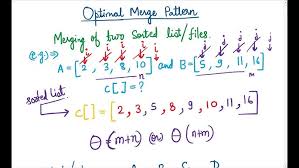 Optimal Merge Pattern
Merging of two Sorted list/files.
(e.g.) ⇒ A = [2, 3, 8, 10] and B = [5, 9, 11, 16]
i i i i i j j j j
n m
C[] = ?
sorted list
C[] = [2, 3, 5, 8, 9, 10, 11, 16]
Θ(m+n) (or) Θ(n+m)